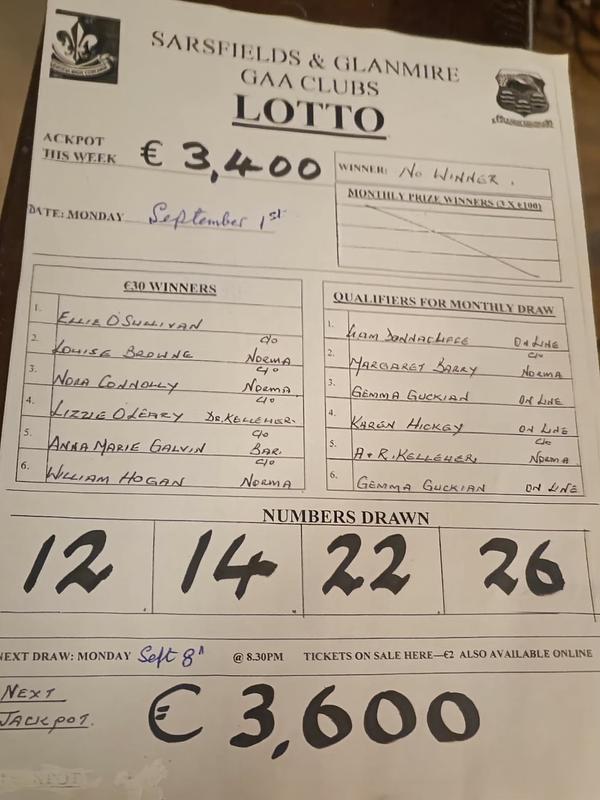 SARSFIELDS & GLANMIRE
GAA CLUBS
LOTTO
ACKPOT
THIS WEEK € 3,400
WINNER: NO WINNER.
MONTHLY PRIZE WINNERS (3 X €100)
DATE: MONDAY September 1st
€30 WINNERS
1. ELLIE O'SULLIVAN
2. LOUISE BROWNE c/o NORMA
3. NORA CONNOLLY c/o NORMA
4. LIZZIE O'LEARY c/o DR. KELLEHER.
5. ANNA MARIE GALVIN c/o BAR.
6. WILLIAM HOGAN c/o NORMA
QUALIFIERS FOR MONTHLY DRAW
1. LIAM DONNACLIFFE ON LINE
2. MARGARET BARRY c/o NORMA
3. GEMMA GUCKIAN ON LINE
4. KAREN HICKEY ON LINE
5. A & R. KELLEHER. c/o NORMA
6. GEMMA GUCKIAN ON LINE
NUMBERS DRAWN
12 14 22 26
NEXT DRAW: MONDAY Sept 8th @ 8.30PM TICKETS ON SALE HERE—€2 ALSO AVAILABLE ONLINE
NEXT
JACKPOT. € 3,600